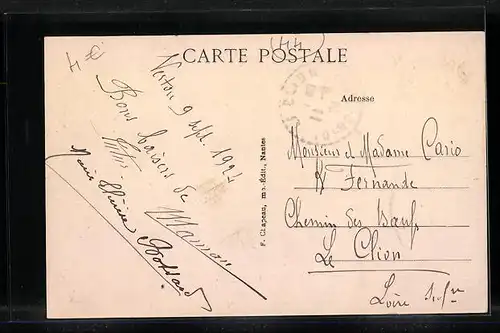 4 €
(44)
CARTE POSTALE
Vertou 9 sept. 1924
Bons baisers de
Maman
Marie Thérèse
F. Chapeau, imp.-Édit., Nantes
Adresse
Monsieur et Madame Cario
Fernande
Chemin des Bœufs
Le Clion
Loire Infre